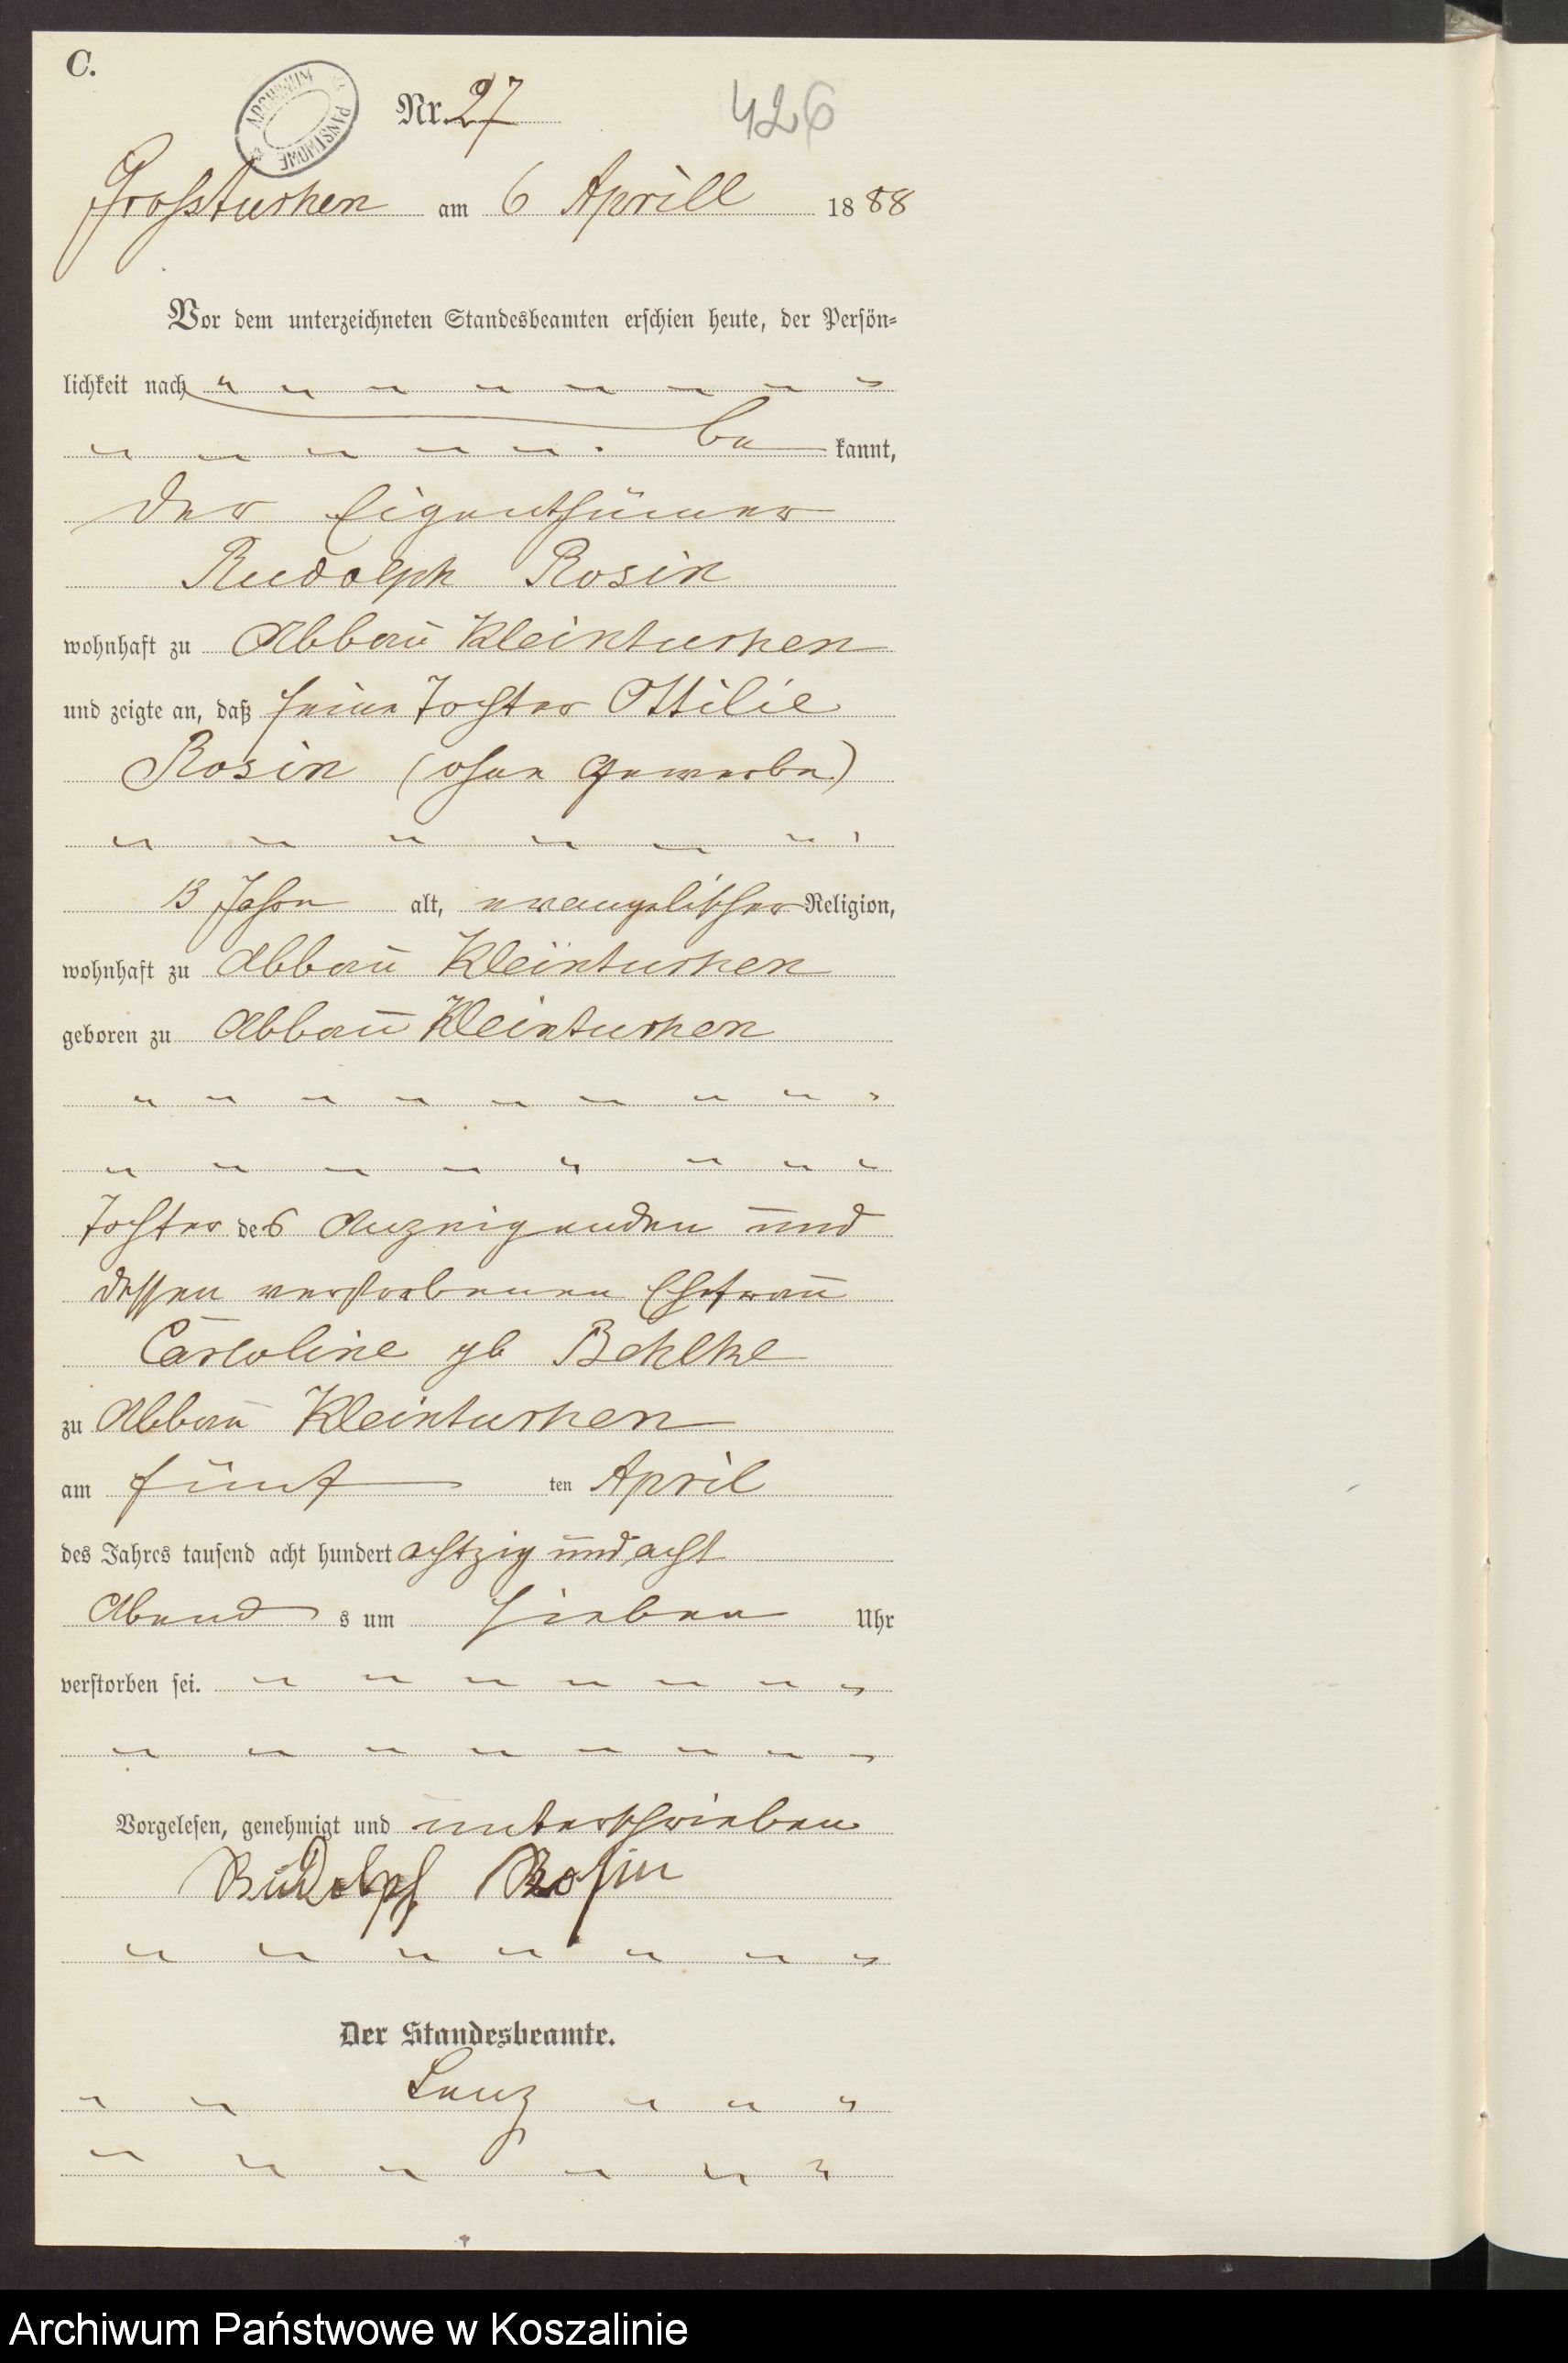 C.
ARCHIWUM PAŃSTWOWE
Nr. 27
426
Grossturhen am 6 Aprill 1888
Vor dem unterzeichneten Standesbeamten erschien heute, der Persön-
lichkeit nach
be kannt,
der Eigenthümer
Rudolph Rosin
wohnhaft zu Abbau Kleinturhen
und zeigte an, daß seine Tochter Ottilie
Rosin (ohne Gewerbe)
13 Jahre alt, evangelischer Religion,
wohnhaft zu Abbau Kleinturhen
geboren zu Abbau Kleinturhen
Tochter des Anzeigenden und
dessen verstorbenen Ehefrau
Caroline gb
zu Abbau Kleinturhen
am fünf ten April
des Jahres tausend acht hundert achtzig und acht
Abend s um sieben Uhr
verstorben sei.
Vorgelesen, genehmigt und unterschrieben
Rudolph Rosin
Der Standesbeamte.
Lenz
Archiwum Państwowe w Koszalinie